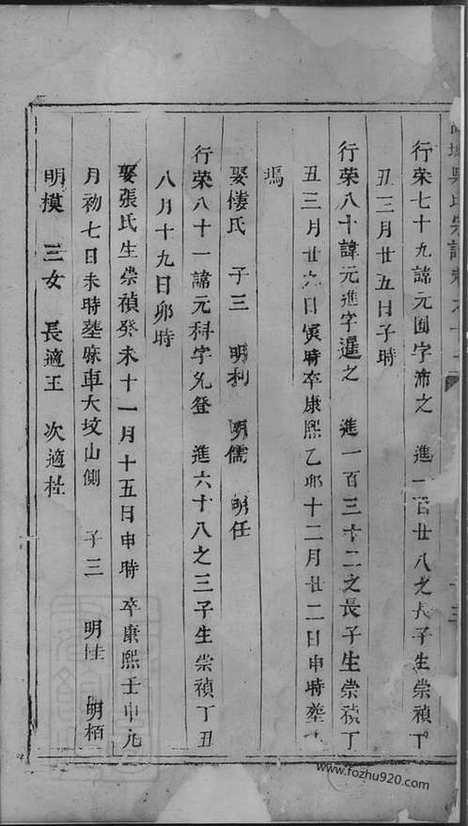 吳氏宗譜卷之十二
十三
行榮七十九諱元國字沛之 進一百廿八之長子生崇禎丁
丑三月廿五日子時
行榮八十諱元進字暹之 進一百三十二之長子生崇禎丁
丑三月廿六日寅時卒康熙乙卯十二月廿二日申時塟
塢
娶樓氏 子三 明利 明儒 明任
行榮八十一諱元科字允登 進六十八之三子生崇禎丁丑
八月十九日卯時
娶張氏生崇禎癸未十一月十五日申時 卒康熙壬申九
月初七日未時塟麻車大坟山側 子三 明桂 明栢
明模 三女 長適王 次適杜
www.fozhu920.com